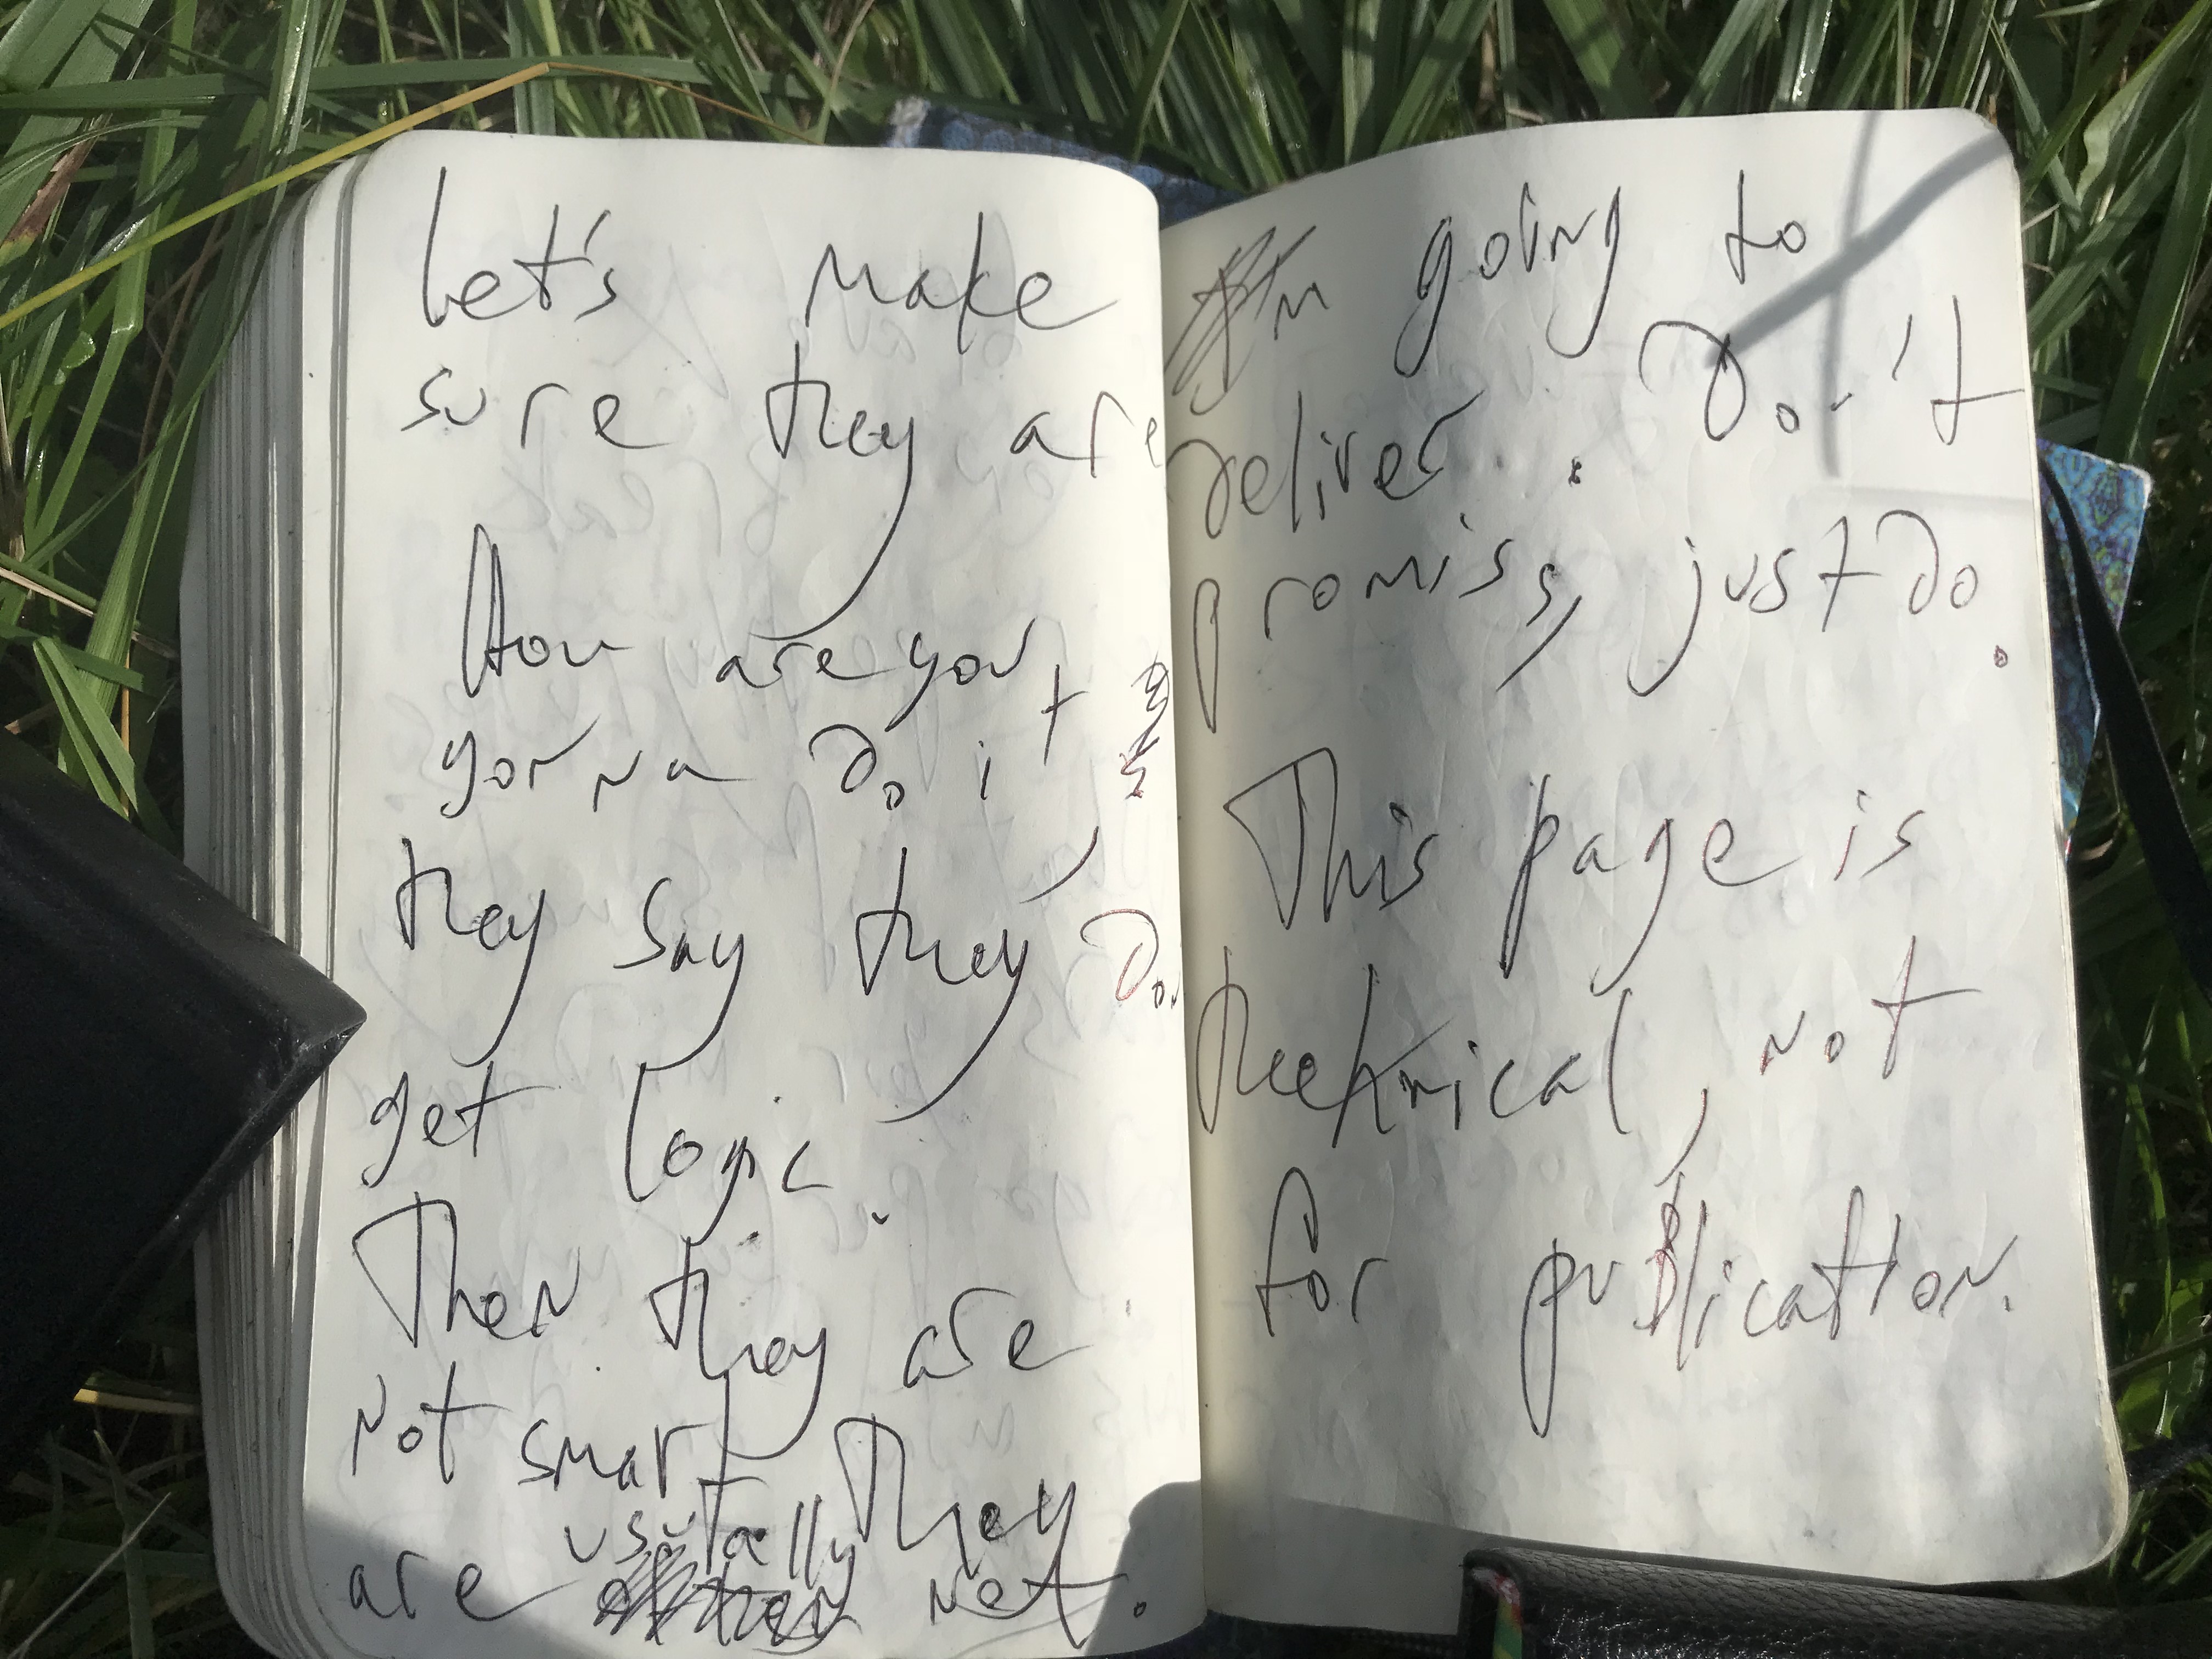 Let's make
sure they are
How are you
gonna Do it,
they say they Do.
get Logic.
Then they are
not smart They
are usually not.
going to
Deliver. Do it
Promiss, just Do.
This page is
not
for publication.